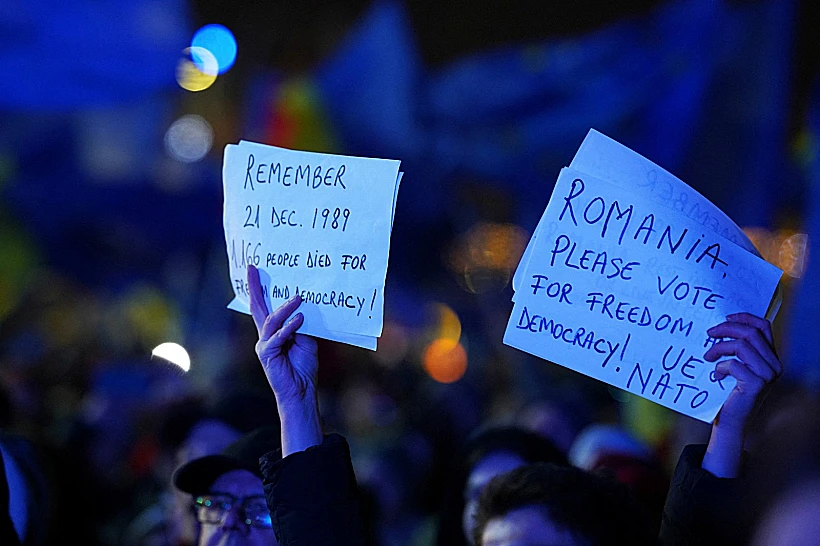 REMEMBER
21 DEC. 1989
1.166 PEOPLE DIED FOR
AND DEMOCRACY!
ROMANIA,
PLEASE VOTE
FOR FREEDOM
DEMOCRACY! UE &
NATO